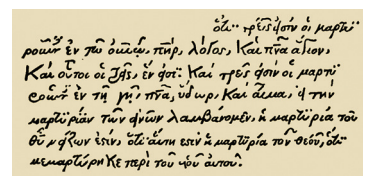 ὅτι τρεῖς εἰσιν οἱ μαρτυ
ροῦντες ἐν τῷ οὐρανῷ, πηρ, λόγος, καὶ πνα ἅγιον,
καὶ οὗτοι οἱ τρεῖς, ἕν εἰσι. καὶ τρεῖς εἰσιν οἱ μαρτυ
ροῦντες ἐν τῇ γῇ, πνα, ὕδωρ, καὶ αἷμα, εἰ τὴν
μαρτυρίαν τῶν ἀνῶν λαμβάνομεν, ἡ μαρτυρία τοῦ
θῦ μείζων ἐστίν, ὅτι αὕτη ἐστὶν ἡ μαρτυρία τοῦ θεοῦ, ὅτι
μεμαρτύρηκε περὶ τοῦ υἱοῦ αὐτοῦ.